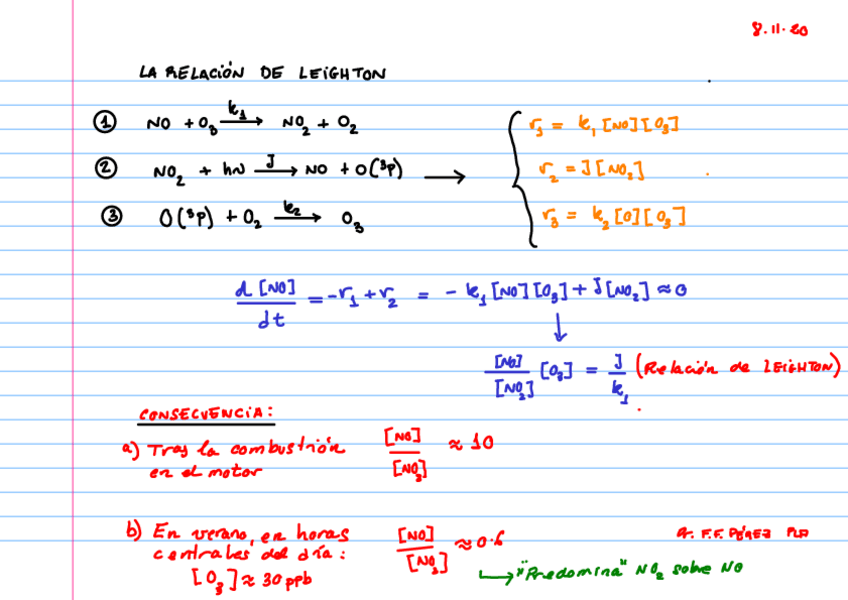 8.11.20
LA RELACIÓN DE LEIGHTON
① NO + O₃ —k₁→ NO₂ + O₂
② NO₂ + hν —J→ NO + O(³P) →
③ O(³P) + O₂ —k₂→ O₃
r₁ = k₁ [NO][O₃]
r₂ = J [NO₂]
r₃ = k₂ [O][O₃]
d [NO] / dt = -r₁ + r₂ = - k₁ [NO][O₃] + J [NO₂] ≈ 0
↓
[NO] / [NO₂] [O₃] = J / k₁ (Relación de LEIGHTON)
CONSECUENCIA:
a) Tras la combustión
en el motor
[NO] / [NO₂] ≈ 10
b) En verano, en horas
centrales del día:
[O₃] ≈ 30 ppb
[NO] / [NO₂] ≈ 0.6
↳ "Predomina" NO₂ sobre NO
F.F. PÉREZ